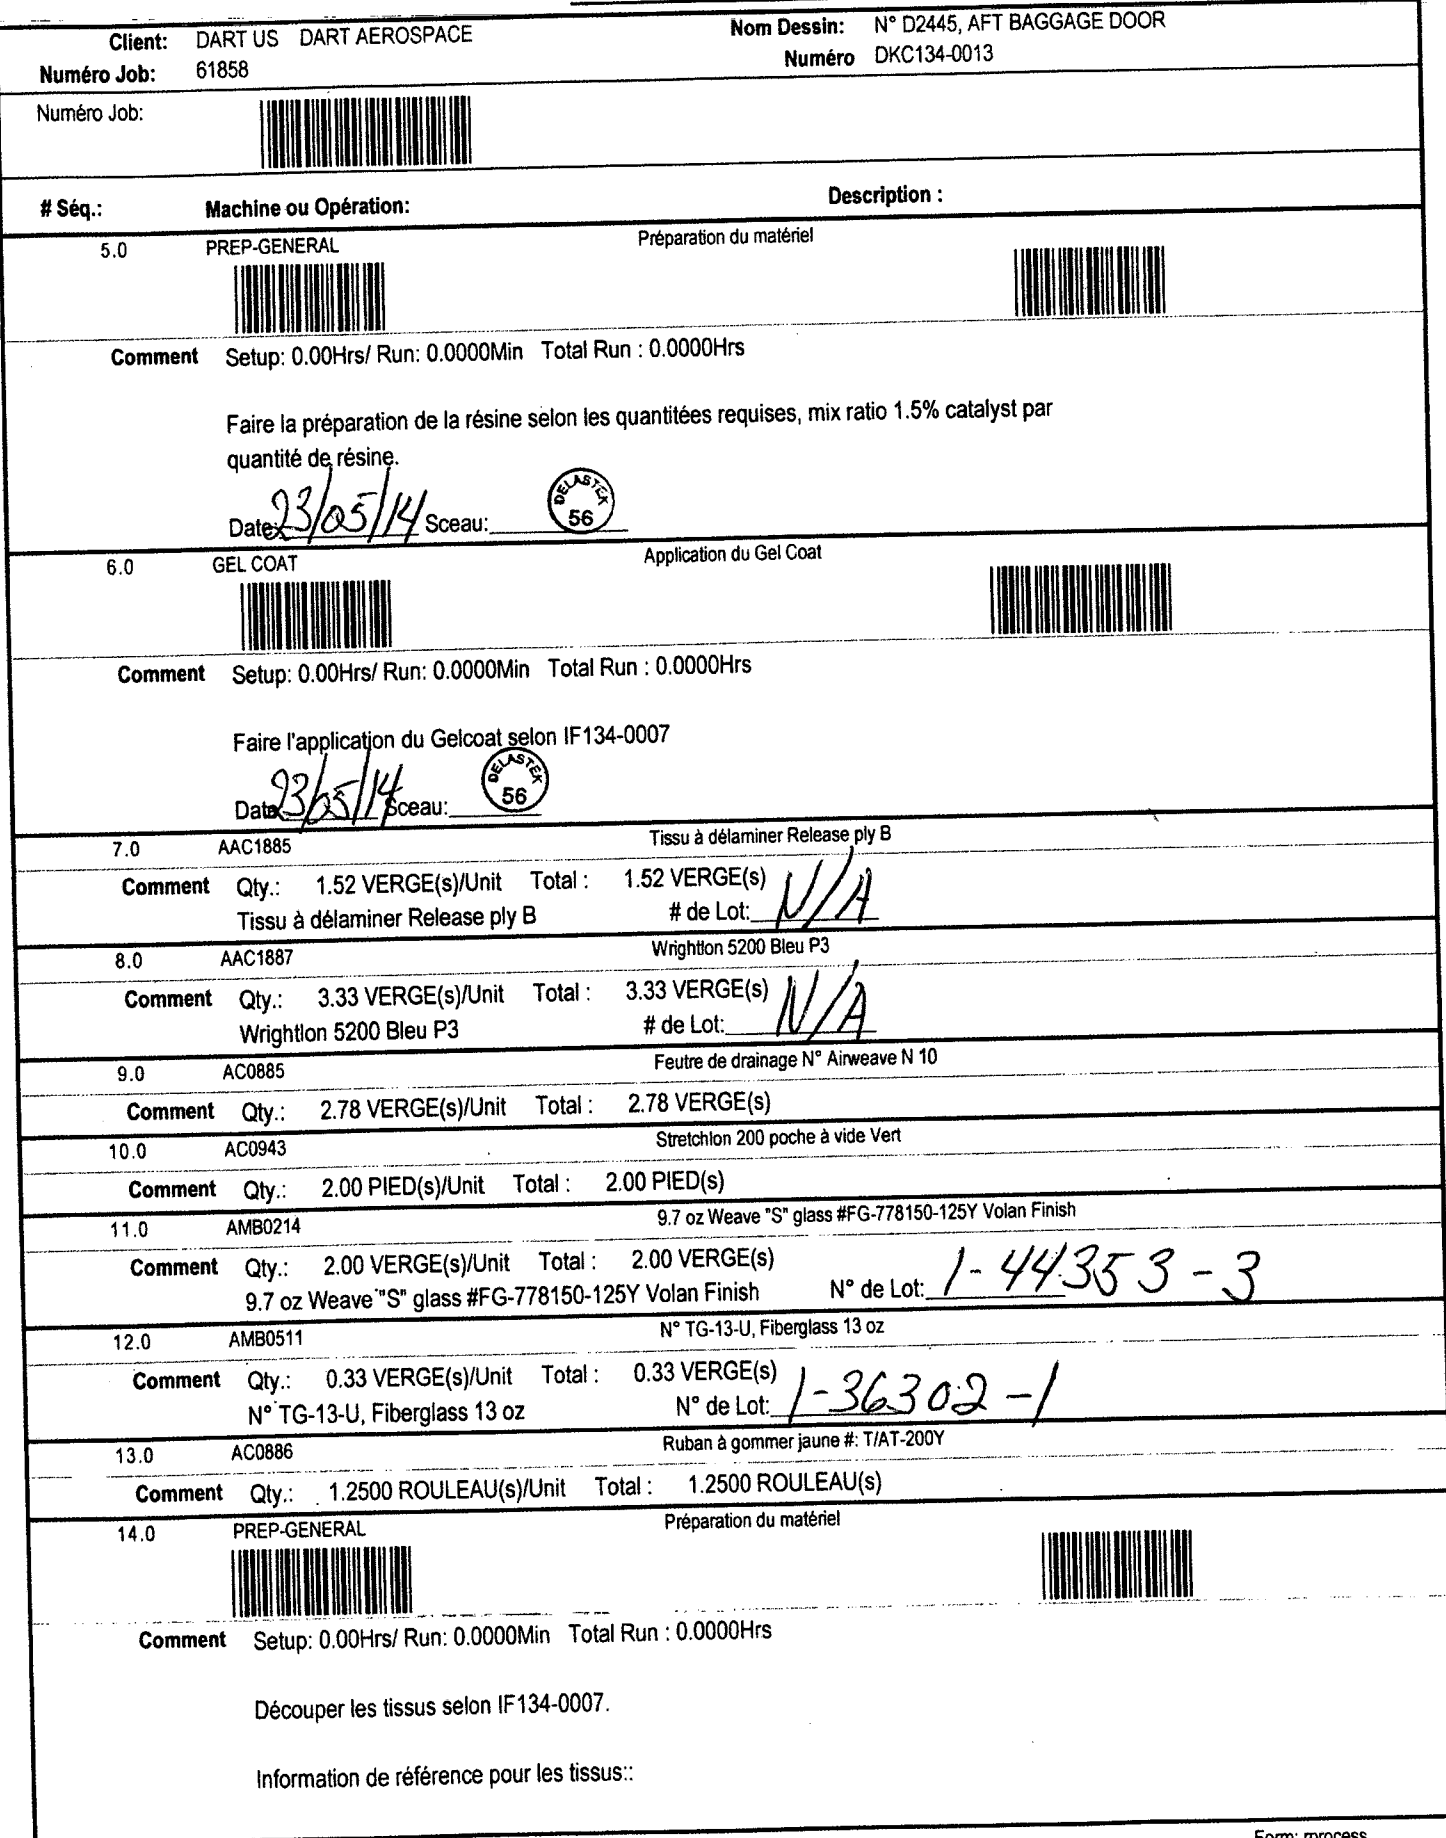 Client: DART US DART AEROSPACE Nom Dessin: N° D2445, AFT BAGGAGE DOOR
Numéro Job: 61858 Numéro DKC134-0013
Numéro Job:
# Séq.: Machine ou Opération: Description :
5.0 PREP-GENERAL Préparation du matériel
Comment Setup: 0.00Hrs/ Run: 0.0000Min Total Run : 0.0000Hrs
Faire la préparation de la résine selon les quantitées requises, mix ratio 1.5% catalyst par
quantité de résine.
Date: 23/05/14 Sceau: DELASTEK 56
6.0 GEL COAT Application du Gel Coat
Comment Setup: 0.00Hrs/ Run: 0.0000Min Total Run : 0.0000Hrs
Faire l'application du Gelcoat selon IF134-0007
Date: 23/05/14 Sceau: DELASTEK 56
7.0 AAC1885 Tissu à délaminer Release ply B
Comment Qty.: 1.52 VERGE(s)/Unit Total : 1.52 VERGE(s)
Tissu à délaminer Release ply B # de Lot: N/A
8.0 AAC1887 Wrightlon 5200 Bleu P3
Comment Qty.: 3.33 VERGE(s)/Unit Total : 3.33 VERGE(s)
Wrightlon 5200 Bleu P3 # de Lot: N/A
9.0 AC0885 Feutre de drainage N° Airweave N 10
Comment Qty.: 2.78 VERGE(s)/Unit Total : 2.78 VERGE(s)
10.0 AC0943 Stretchlon 200 poche à vide Vert
Comment Qty.: 2.00 PIED(s)/Unit Total : 2.00 PIED(s)
11.0 AMB0214 9.7 oz Weave "S" glass #FG-778150-125Y Volan Finish
Comment Qty.: 2.00 VERGE(s)/Unit Total : 2.00 VERGE(s)
9.7 oz Weave "S" glass #FG-778150-125Y Volan Finish N° de Lot: 1-44353-3
12.0 AMB0511 N° TG-13-U, Fiberglass 13 oz
Comment Qty.: 0.33 VERGE(s)/Unit Total : 0.33 VERGE(s)
N° TG-13-U, Fiberglass 13 oz N° de Lot: 1-36302-1
13.0 AC0886 Ruban à gommer jaune #: T/AT-200Y
Comment Qty.: 1.2500 ROULEAU(s)/Unit Total : 1.2500 ROULEAU(s)
14.0 PREP-GENERAL Préparation du matériel
Comment Setup: 0.00Hrs/ Run: 0.0000Min Total Run : 0.0000Hrs
Découper les tissus selon IF134-0007.
Information de référence pour les tissus::
Form: rprocess